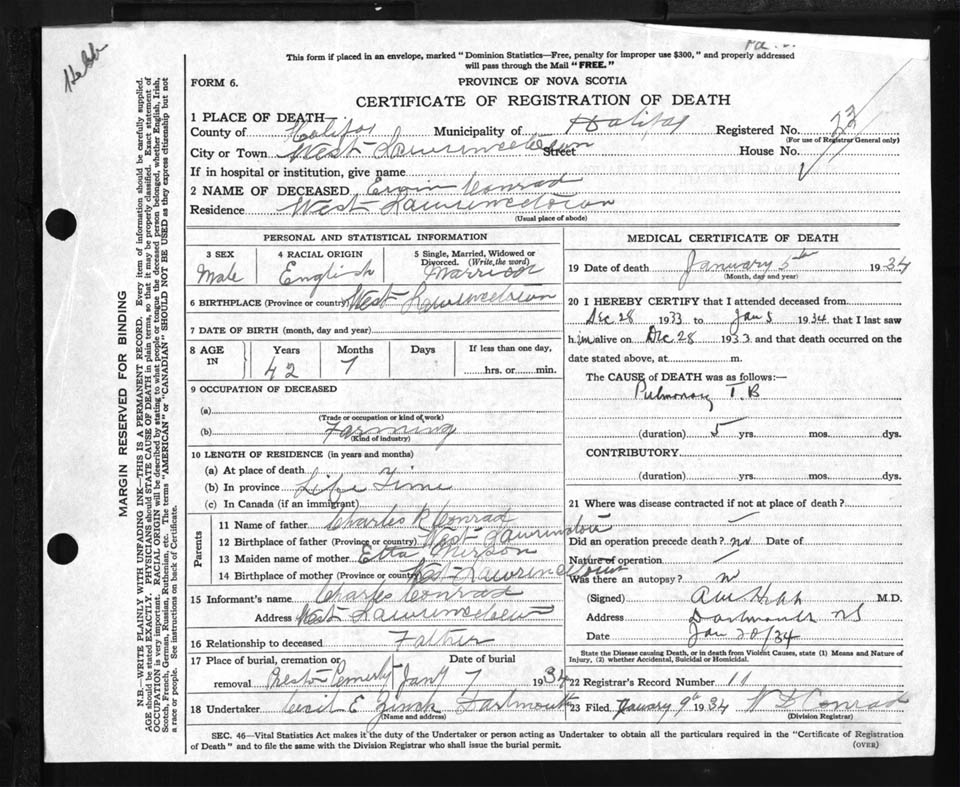 Hebb
This form if placed in an envelope, marked "Dominion Statistics—Free, penalty for improper use $300," and properly addressed
will pass through the Mail "FREE."
FORM 6.
PROVINCE OF NOVA SCOTIA
CERTIFICATE OF REGISTRATION OF DEATH
1 PLACE OF DEATH
County of Halifax Municipality of Halifax Registered No. 23
(For use of Registrar General only)
City or Town West Lawrencetown Street House No.
If in hospital or institution, give name
2 NAME OF DECEASED Ervin Conrad
Residence West Lawrencetown
(Usual place of abode)
PERSONAL AND STATISTICAL INFORMATION
3 SEX Male
4 RACIAL ORIGIN English
5 Single, Married, Widowed or
Divorced. (Write the word)
Married
6 BIRTHPLACE (Province or country) West Lawrencetown
7 DATE OF BIRTH (month, day and year)
8 AGE IN Years Months Days If less than one day,
42 7 hrs. or min.
9 OCCUPATION OF DECEASED
(a)
(Trade or occupation or kind of work)
(b) Farming
(Kind of industry)
10 LENGTH OF RESIDENCE (in years and months)
(a) At place of death
(b) In province Life Time
(c) In Canada (if an immigrant)
Parents
11 Name of father Charles R Conrad
12 Birthplace of father (Province or country) West Lawrencetown
13 Maiden name of mother Etta
14 Birthplace of mother (Province or country) West Lawrencetown
15 Informant's name Charles Conrad
Address West Lawrencetown
16 Relationship to deceased Father
17 Place of burial, cremation or removal Date of burial
Preston Jan 7 1934
18 Undertaker Cecil E Zinck Dartmouth
(Name and address)
MEDICAL CERTIFICATE OF DEATH
19 Date of death January 5th 1934
(Month, day and year)
20 I HEREBY CERTIFY that I attended deceased from
Dec 28 1933 to Jan 5 1934 that I last saw
him alive on Dec 28 1933 and that death occurred on the
date stated above, at m.
The CAUSE of DEATH was as follows:—
Pulmonary T.B
(duration) 5 yrs. mos. dys.
CONTRIBUTORY
(duration) yrs. mos. dys.
21 Where was disease contracted if not at place of death?
Did an operation precede death? no Date of
Nature of operation
Was there an autopsy? no
(Signed) M.D.
Address Dartmouth NS
Date Jan 20/34
State the Disease causing Death, or in death from Violent Causes, state (1) Means and Nature of
Injury, (2) whether Accidental, Suicidal or Homicidal.
22 Registrar's Record Number 11
23 Filed January 9th 1934 W D Conrad
(Division Registrar)
SEC. 46—Vital Statistics Act makes it the duty of the Undertaker or person acting as Undertaker to obtain all the particulars required in the "Certificate of Registration
of Death" and to file the same with the Division Registrar who shall issue the burial permit. (OVER)
MARGIN RESERVED FOR BINDING
N.B.—WRITE PLAINLY WITH UNFADING INK—THIS IS A PERMANENT RECORD. Every item of information should be carefully supplied.
AGE should be stated EXACTLY. PHYSICIANS should STATE CAUSE OF DEATH in plain terms, so that it may be properly classified. Exact statement of
OCCUPATION is very important. RACIAL ORIGIN will be described by stating to what people or tongue the deceased person belonged, whether English, Irish,
Scotch, French, German, Russian, Ruthenian, etc. The terms "AMERICAN" or "CANADIAN" SHOULD NOT BE USED as they express citizenship but not
a race or people. See instructions on back of Certificate.